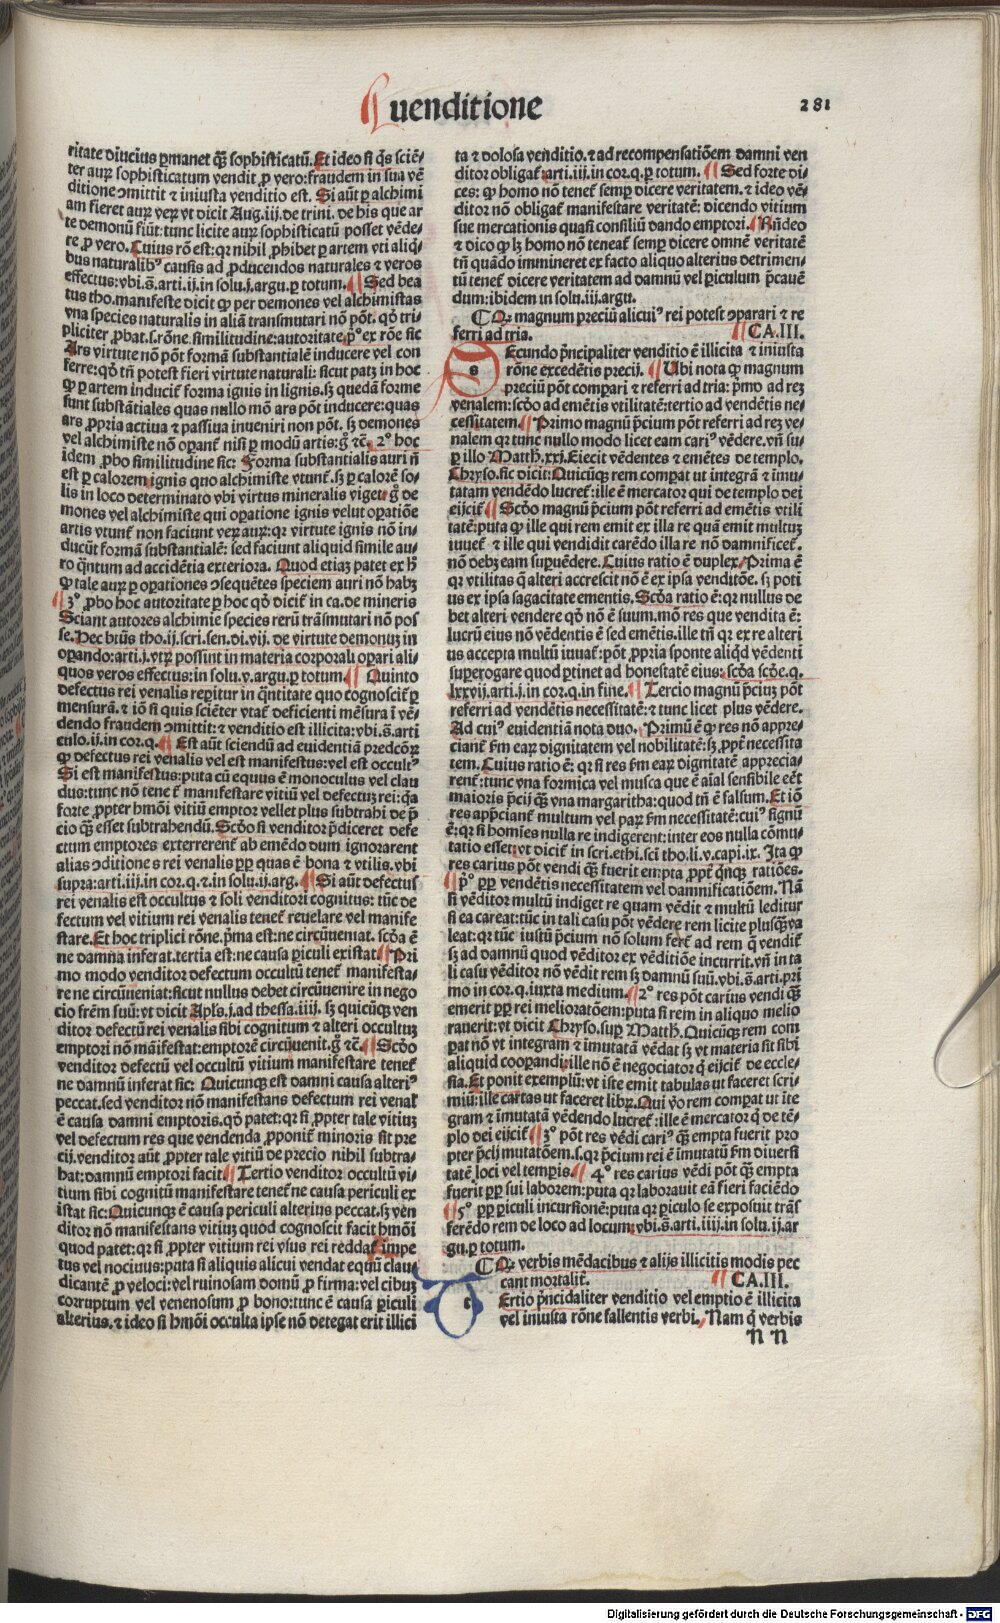 uenditione
281
ritate diuciꝰ ꝑmanet qꝫ̃ sophisticatū. Et ideo si q̇s sciē-
ter auꝝ sophisticatum vendit ꝓ vero: fraudem in sua vē
ditione ɔmittit ⁊ iniusta venditio est. Si aūt ꝑ alchimi
am fieret auꝝ veꝝ vt dicit Aug. iij. de trini. de his que ar
te demonū fiūt: tunc licite auꝝ sophisticatū posset vēde-
re ꝓ vero. Cuius rō est: qꝛ nihil ꝓhibet ꝑ artem vti aliq̇-
bus naturalibꝰ causis ad ꝓducendos naturales ⁊ veros
effectus: vbi. s̄. arti. ij. in solu. j. argu. ꝑ totum. Sed bea
tus tho. manifeste dicit ꝙ per demones vel alchimistas
vna species naturalis in aliā transmutari nō pōt. qd̓ tri-
pliciter ꝓbat. s. rōne. similitudine: autoritate. pͦ ex rōe sic
Ars virtute nō pōt formā substantialē inducere vel con
ferre: qd̓ tñ potest fieri virtute naturali: sicut patꝫ in hoc
ꝙ ꝑ artem inducit̃ forma ignis in lignis. sꝫ quedā forme
sunt substātiales quas nullo mō ars pōt inducere: quas
ars ꝓpria actiua ⁊ passiua inueniri non pōt. sꝫ demones
vel alchimiste nō oꝑant̃ nisi ꝑ modū artis: g̃ ⁊c̄. 2ͦ hoc
idem ꝓbo similitudine sic: Forma substantialis auri ñ
est ꝑ calorem ignis quo alchimiste vtunt̃. sꝫ ꝑ calorē so-
lis in loco determinato vbi virtus mineralis viget: g̃ de
mones vel alchimiste qui oꝑatione ignis velut oꝑatiōe
artis vtunt̃ non faciunt veꝝ auꝝ: qꝛ virtute ignis nō in-
ducūt formā substantialē: sed faciunt aliquid simile au-
ro q̄ntum ad accidētia exteriora. Quod etiaꝫ patet ex hͦ
ꝙ tale auꝝ ꝑ oꝑationes ɔsequētes speciem auri nō habꝫ
3ͦ ꝓbo hoc autoritate ꝑ hoc qd̓ dicit̃ in ca. de mineris
Sciant autores alchimie species rerū trāsmutari nō pos
se. Hec btūs tho. ij. scri. sen. di. vij. de virtute demonuꝫ in
oꝑando: arti. j. vtꝝ possint in materia corporali oꝑari ali-
quos veros effectus: in solu. v. argu. ꝑ totum. Quinto
defectus rei venalis reꝑitur in q̄ntitate quo cognoscit̃ ꝑ
mensurā. ⁊ iō si quis sciēter vtat̃ deficienti mēsura ī vē-
dendo fraudem ɔmittit: ⁊ venditio est illicita: vbi. s̄. arti
culo. ij. in cor. q. Est aūt sciendū ad euidentiā predcōꝝ
ꝙ defectus rei venalis vel est manifestus: vel est occultꝰ
Si est manifestus: puta cū equus ē monoculus vel clau
dus: tunc nō tenet̃ manifestare vitiū vel defectuꝫ rei: q̄a
forte ꝓpter hmōi vitiū emptor vellet plus subtrahi de p̄
cio qꝫ̃ esset subtrahendū. Scd̓o si venditor p̄diceret defe
ctum emptores exterrerent̃ ab emēdo dum ignorarent
alias ɔditiones rei venalis ꝓpꝑ quas ē bona ⁊ vtilis. vbi
supra: arti. iij. in cor. q. ⁊. in solu. ij. arg. Si aūt defectus
rei venalis est occultus ⁊ soli venditori cognitus: tūc de
fectum vel vitium rei venalis tenet̃ reuelare vel manife
stare. Et hoc triplici rōne. p̄ma est: ne circūueniat. scd̓a ē
ne damna inferat. tertia est: ne causa ꝑiculi existat. Pri
mo modo venditor defectum occultū tenet̃ manifesta-
re ne circūueniat: sicut nullus debet circūuenire in nego
cio frēm suū: vt dicit Apl̓s. j. ad thessa. iiij. sꝫ quicūqꝫ ven
ditor defectū rei venalis sibi cognitum ⁊ alteri occultuꝫ
emptori nō māifestat: emptorē circūuenit. g̃ ⁊c̄. Scd̓o
venditor defectū vel occultū vitium manifestare tenet̃
ne damnū inferat sic: Quicunqꝫ est damni causa alteriꝰ
peccat. sed venditor nō manifestans defectum rei venal̓
ē causa damni emptoris. qd̓ patet: qꝛ si ꝓpter tale vitiuꝫ
vel defectum res que vendenda ꝓponit̃ minoris sit pre
cij. venditor aūt ꝓpter tale vitiū de precio nihil subtra-
hat: damnū emptori facit. Tertio venditor occultū vi-
tium sibi cognitū manifestare tenet̃ ne causa periculi ex
istat sic: Quicunqꝫ ē causa periculi alterius peccat. sꝫ ven
ditor nō manifestans vitiuꝫ quod cognoscit facit hmōi
quod patet: qꝛ si ꝓpter vitium rei vsus rei reddat̃ impe
tus vel nociuus: puta si aliquis alicui vendat equū clau
dicantē ꝓ veloci: vel ruinosam domū ꝓ firma: vel cibuꝫ
corruptum vel venenosum ꝓ bono: tunc ē causa ꝑiculi
alterius. ⁊ ideo si hmōi occulta ipse nō detegat erit illici
ta ⁊ dolosa venditio. ⁊ ad recompensatiōem damni ven
ditor obligat̃: arti. iii. in cor. q. ꝑ totum. Sed forte di-
ces: ꝙ homo nō tenet̃ semꝑ dicere veritatem. ⁊ ideo vē-
ditor nō obligat̃ manifestare veritatē: dicendo vitium
sue mercationis quasi consiliū dando emptori. Rñdeo
⁊ dico ꝙ lꝫ homo nō teneat̃ semꝑ dicere omnē veritatē
tñ quādo immineret ex facto aliquo alterius detrimen-
tū tenet̃ dicere veritatem ad damnū vel ꝑiculum p̄cauē
dum: ibidem in solu. iij. argu.
Qꝛ magnum preciū alicuiꝰ rei potest ɔparari ⁊ re
ferri ad tria. CA. III.
s Ecundo p̄ncipaliter venditio ē illicita ⁊ iniusta
rōne excedētis precij. Ubi nota ꝙ magnum
preciū pōt compari ⁊ referri ad tria: p̄mo ad reꝫ
venalem: scd̓o ad emētis vtilitatē: tertio ad vendētis ne-
cessitatem. Primo magnū p̄cium pōt referri ad reꝫ ve-
nalem qꝛ tunc nullo modo licet eam cariꝰ vēdere. vñ su-
ꝑ illo Matth. xxj. Eiecit vēdentes ⁊ emētes de templo.
Chryso. sic dicit: Quicūqꝫ rem comꝑat vt integrā ⁊ imu-
tatam vendēdo lucret̃: ille ē mercator qui de templo dei
eijcit̃. Scd̓o magnū p̄cium pōt referri ad emētis vtili
tatē: puta ꝙ ille qui rem emit ex illa re quā emit multuꝫ
iuuet̃ ⁊ ille qui vendidit carēdo illa re nō damnificet̃.
nō debꝫ eam suꝑuēdere. Cuius ratio ē duplex. Prima ē
qꝛ vtilitas q̄ alteri accrescit nō ē ex ipsa venditōe. sꝫ poti
us ex ipsa sagacitate ementis. Scd̓a ratio ē: qꝛ nullus de
bet alteri vendere qd̓ nō ē suum. mō res que vendita ē:
lucrū eius nō vēdentis ē sed emētis. ille tñ qꝛ ex re alteri
us accepta multū iuuat̃: pōt ꝓpria sponte aliq̇d vēdenti
suꝑerogare quod ꝑtinet ad honestatē eius: scd̓a scd̓e. q.
lxxvij. arti. j. in cor. q. in fine. Tercio magnū p̄ciuꝫ pōt
referri ad vendētis necessitatē: ⁊ tunc licet plus vēdere.
Ad cuiꝰ euidentiā nota duo. Primū ē ꝙ res nō appre-
ciant̃ fm̄ eaꝝ dignitatem vel nobilitatē: sꝫ ꝓpt̃ necessita
tem. Cuius ratio ē: qꝛ si res fm̄ eaꝝ dignitatē apprecia-
rent̃: tunc vna formica vel musca que ē aīal sensibile eēt
maioris p̄cij qꝫ̃ vna margaritha: quod tñ ē falsum. Et iō
res app̄ciant̃ multum vel paꝝ fm̄ necessitatē: cuiꝰ signū
ē: qꝛ si homīes nulla re indigerent: inter eos nulla cōmu-
tatio esset: vt dicit̃ in scri. ethi. sci tho. li. v. capi. ix. Ita ꝙ
res carius pōt vendi qꝫ̃ fuerit empta ꝓpt̃ q̇nqꝫ ratiōes.
pͦ ꝓpꝑ vendētis necessitatem vel damnificatiōem. Nā
si vēditor multū indiget re quam vēdit ⁊ multū leditur
si ea careat: tūc in tali casu pōt vēdere rem licite plusqꝫ̃ va
leat: qꝛ tūc iustū p̄cium nō solum fert̃ ad rem q̄ vendit̃
sꝫ ad damnū quod vēditor ex vēditiōe incurrit. vñ in ta
li casu vēditor nō vēdit rem sꝫ damnū suū. vbi. s̄. arti. pri
mo in cor. q. iuxta medium. 2ͦ res pōt carius vendi qꝫ̃
emerit ꝓpꝑ rei melioratōem: puta si rem in aliquo melio
rauerit: vt dicit Chryso. suꝑ Matth. Quicūqꝫ rem com
ꝑat nō vt integram ⁊ īmutatā vēdat sꝫ vt materia sit sibi
aliquid cooꝑandi: ille nō ē negociator q̇ eijcit̃ de eccle-
sia. Et ponit exemplū: vt iste emit tabulas vt faceret scri-
niū: ille cartas vt faceret libꝝ. Qui v̓o rem comꝑat vt īte
gram ⁊ īmutatā vēdendo lucret̃: ille ē mercator q̇ de tē-
plo dei eijcit̃. 3ͦ pōt res vēdi cariꝰ qꝫ̃ empta fuerit pro
pter p̄cij mutatōem. s. qꝛ p̄cium rei ē īmutatū fm̄ diuersi
tatē loci vel temꝑis. 4ͦ res carius vēdi pōt qꝫ̃ empta
fuerit ꝓpꝑ sui laborem: puta qꝛ laborauit eā fieri faciēdo
5ͦ ꝓpꝑ ꝑiculi incursionē: puta qꝛ ꝑiculo se exposuit trās
ferēdo rem de loco ad locum: vbi. s̄. arti. iiij. in solu. ij. ar
gu. ꝑ totum.
Qꝛ verbis mēdacibus ⁊ alijs illicitis modis pec
cant mortalit̃. CA. III.
t Ertio p̄ncidaliter venditio vel emptio ē illicita
vel iniusta rōne fallentis verbi. Nam q̇ verbis
N N
Digitalisierung gefördert durch die Deutsche Forschungsgemeinschaft - DFG